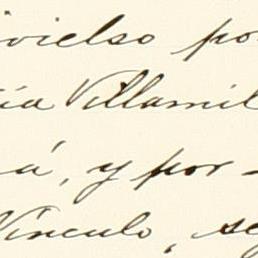 ivielso po
ía Villamil
á, y por -
Vínculo, se